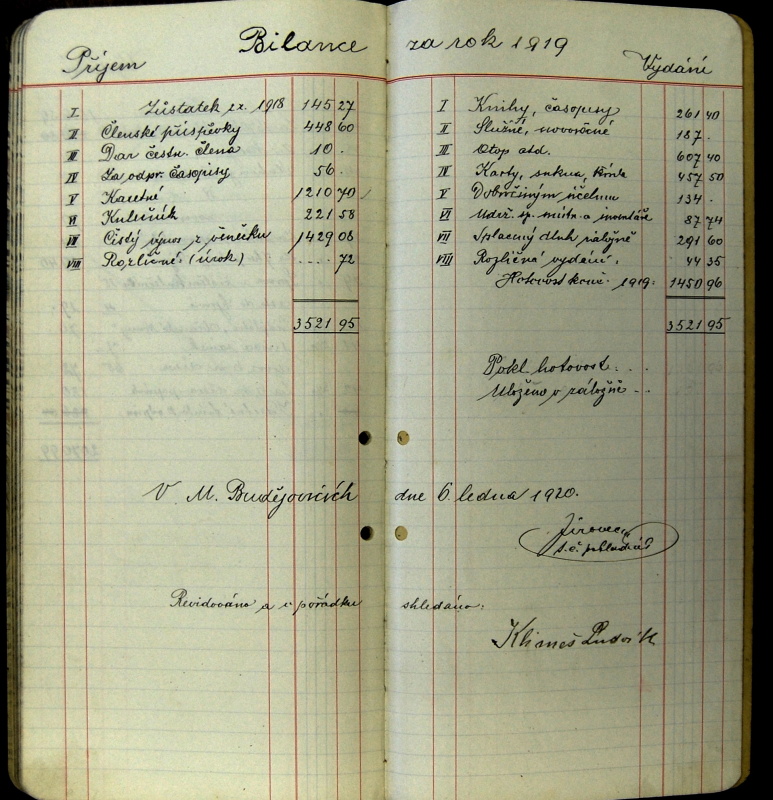 Bilance za rok 1919
Příjem
I. Zůstatek z r. 1918 145 27
II Členské příspěvky 448 60
III Dar čestn. člena 10 .
IV Za odpr. časopisy 56 .
V Karetné 1210 70
VI Kulečník 221 58
VII Čistý výnos z věnečku 1429 06
VIII Rozličné (úrok) .... 72
3521 95
Vydání
I Knihy, časopisy 261 40
II Služné, novoročné 187 .
III Otop atd. 607 40
IV Karty, sukna, křída 457 50
V Dobročinným účelům 134 .
VI Udrž. sp. místn. a inventáře 87 74
VII Splacený dluh 291 60
VIII Rozličná vydání . 44 35
Hotovost konc. 1919: 1450 96
3521 95
Pokl. hotovost: . .
Uloženo v záložně . . .
V M. Budějovicích dne 6. ledna 1920.
Jirovec
t. č. pokladník
Revidováno a v pořádku shledáno:
Klimeš Ludvík